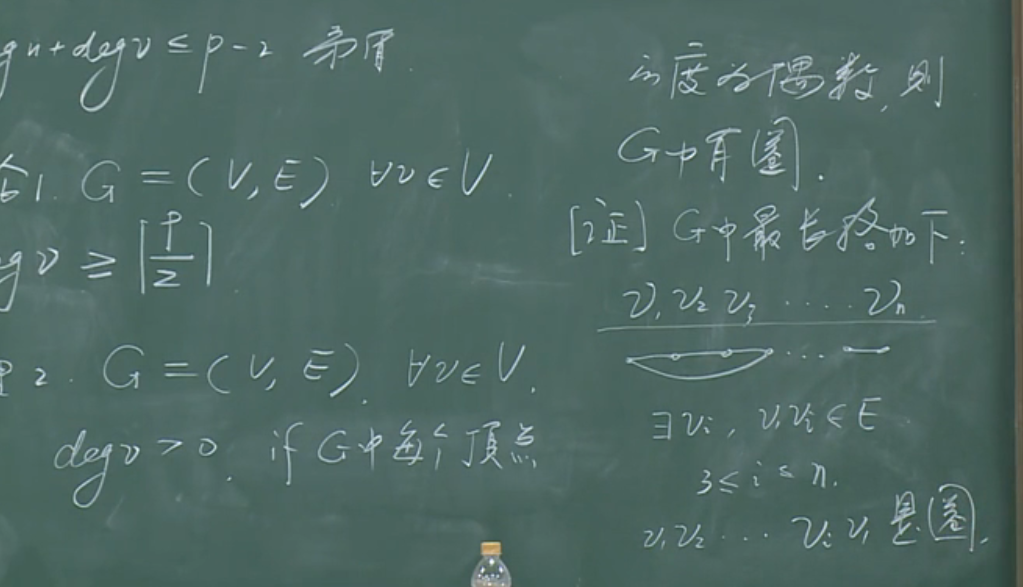 g u + deg v ≤ p - 2 矛盾.
1. G = (V, E) ∀v ∈ V.
g v ≥ ⌈p/2⌉.
2. G = (V, E). ∀v ∈ V.
deg v > 0. if G中每个顶点
的度为偶数, 则
G中有圈.
[证] G中最长路如下:
v₁ v₂ v₃ ..... vₙ
...
∃vᵢ, v₁vᵢ ∈ E
3 ≤ i ≤ n.
v₁ v₂ ... vᵢ v₁ 是圈.